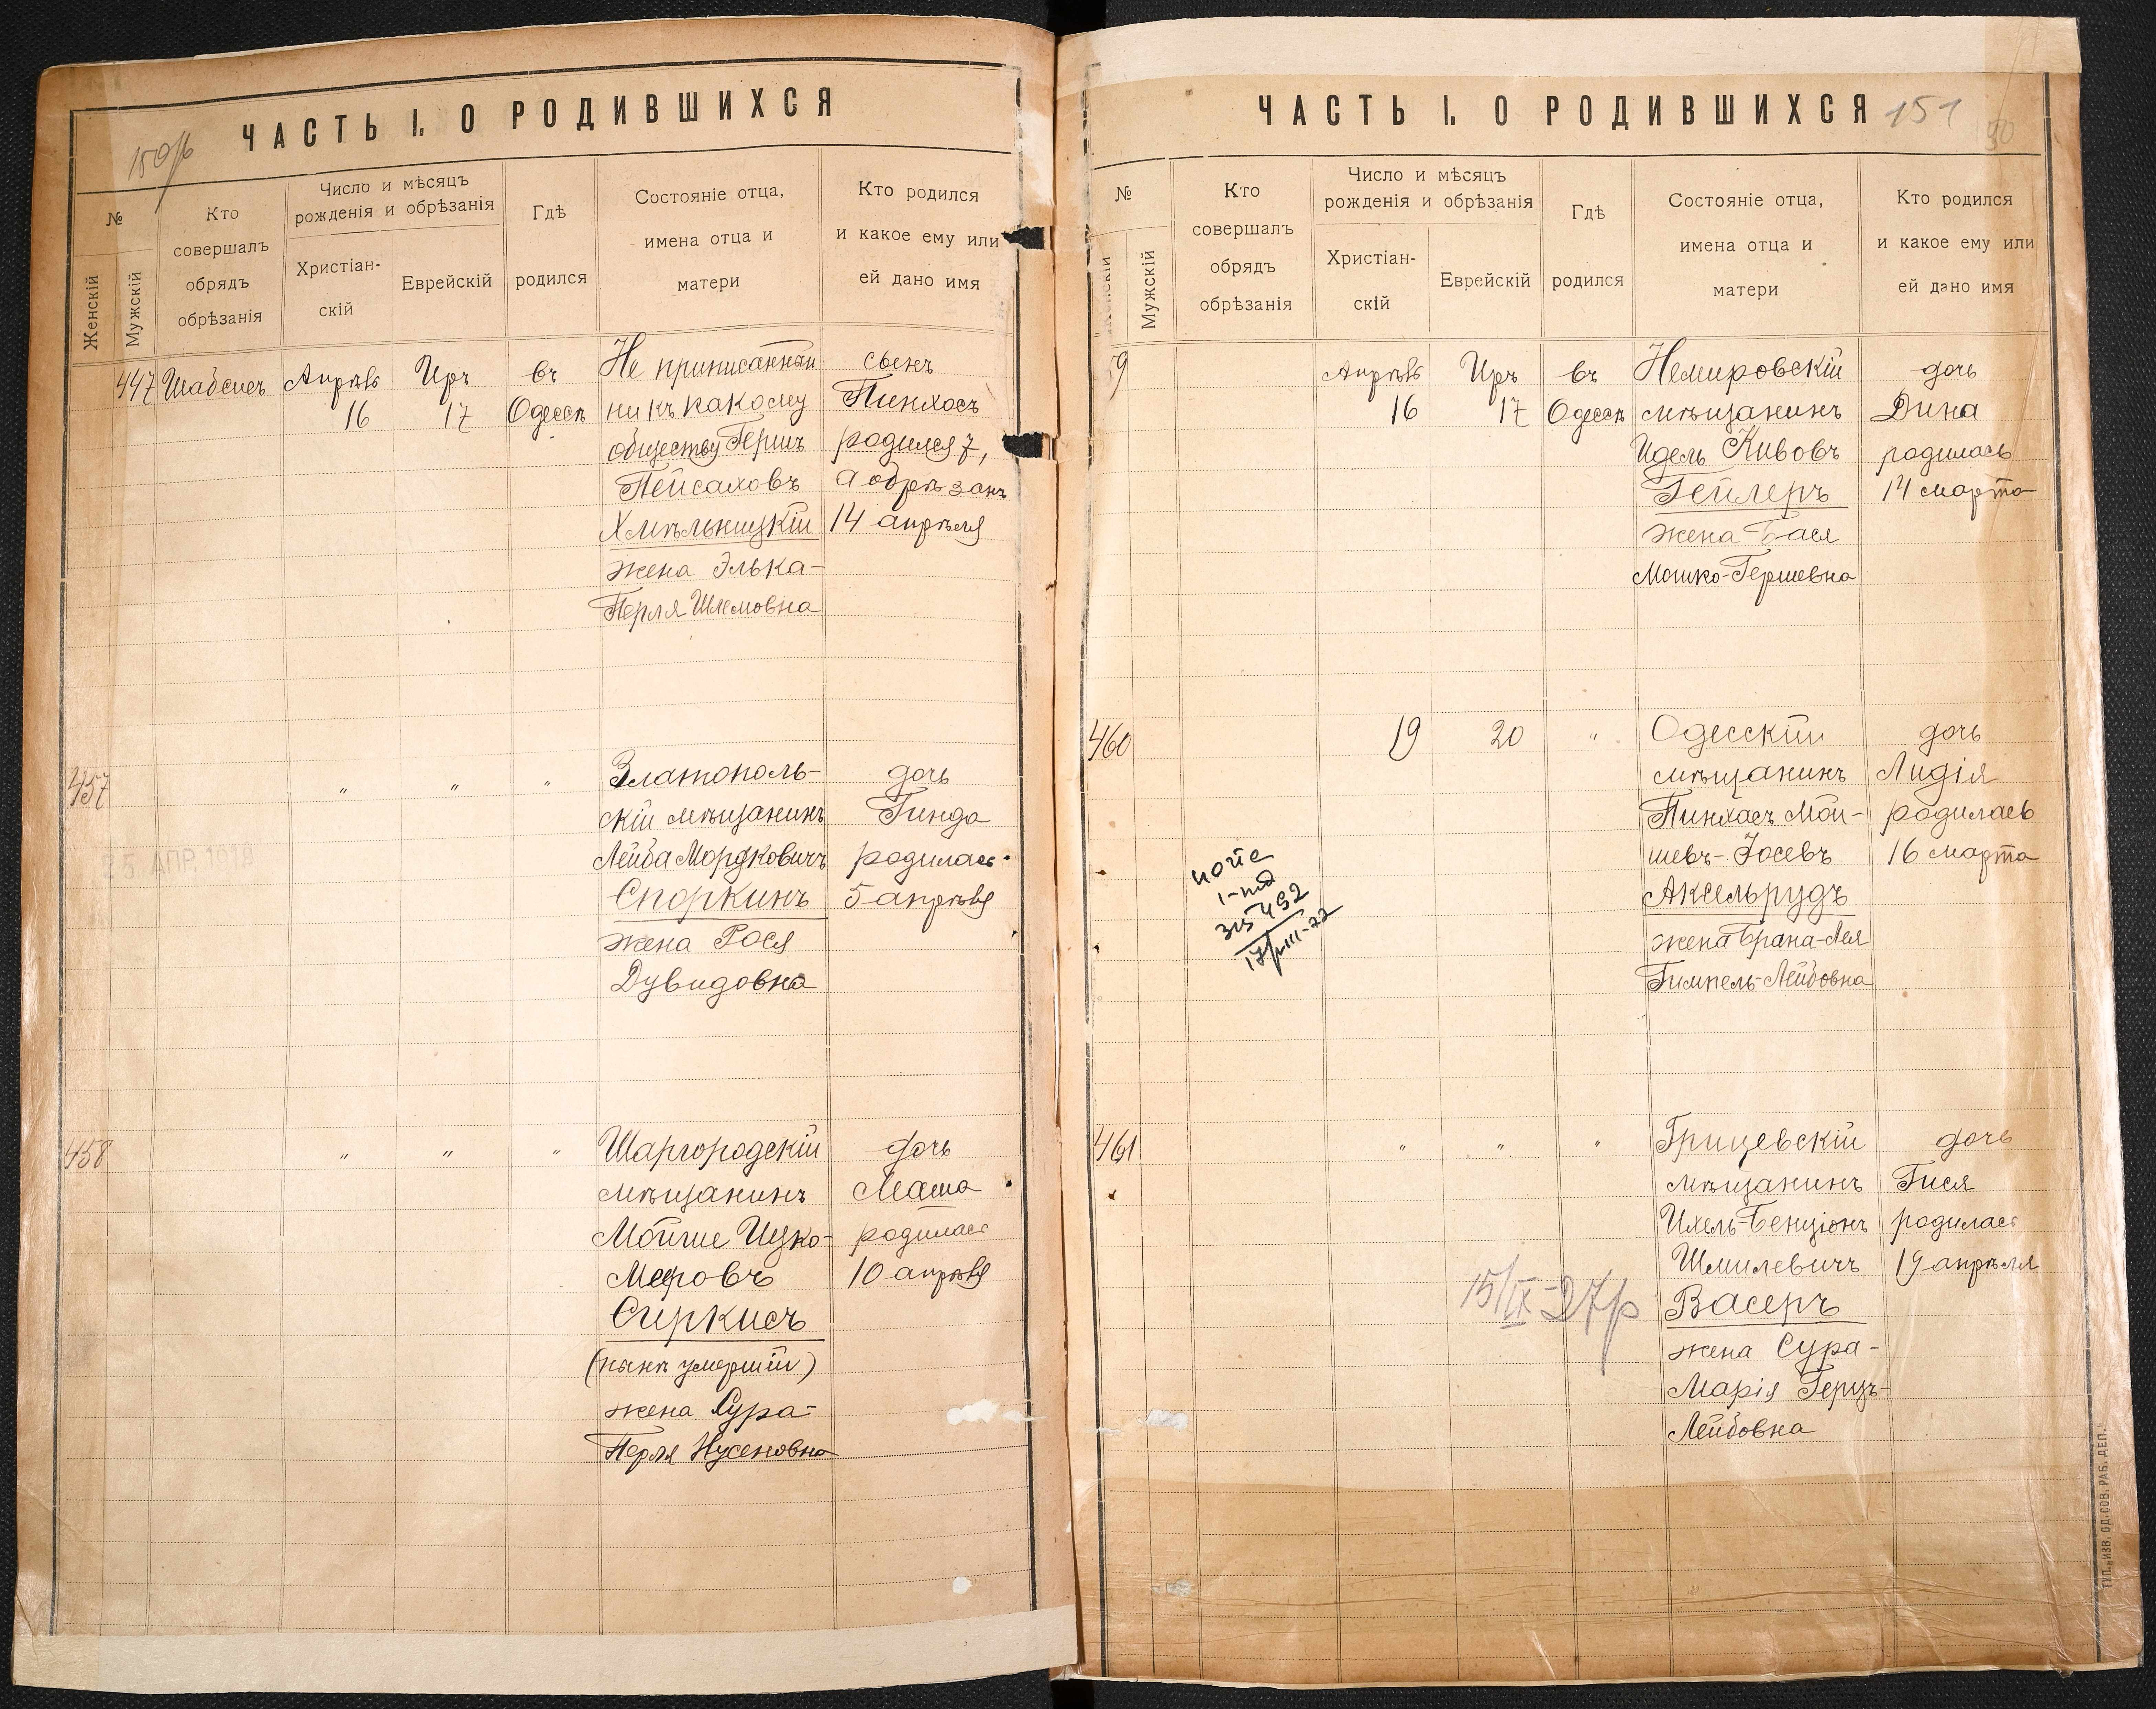 ЧАСТЬ I. О РОДИВШИХСЯ
150/б
№
Женскій
Мужскій
Кто
совершалъ
обрядъ
обрѣзанія
Число и мѣсяцъ
рожденія и обрѣзанія
Христіан-
скій
Еврейскій
Гдѣ
родился
Состояніе отца,
имена отца и
матери
Кто родился
и какое ему или
ей дано имя
447 Шабсисъ Апрѣль Иръ въ Не приписанный сынъ
16 17 Одессѣ ни къ какому Пинхосъ
обществу Гершъ родился 7,
Пейсаховъ а обрѣзанъ
Хмѣльницкій 14 апрѣля
жена Элька-
Перля Шлемовна
457 " " " Златополь- дочь
скій мѣщанинъ Гинда
Лейба Мордковичъ родилась
Споркинъ 5 апрѣля
жена Рося
Дувидовна
25 АПР. 1919
458 " " " Шаргородскій дочь
мѣщанинъ Маша
Мойше Ицко- родилась
Меровъ 10 апрѣля
Сиркисъ
(нынѣ умершій)
жена Сура-
Перля Нусеновна
ЧАСТЬ I. О РОДИВШИХСЯ 151
№
Мужскій
Кто
совершалъ
обрядъ
обрѣзанія
Число и мѣсяцъ
рожденія и обрѣзанія
Христіан-
скій
Еврейскій
Гдѣ
родился
Состояніе отца,
имена отца и
матери
Кто родился
и какое ему или
ей дано имя
59 Апрѣль Иръ въ Немировскій дочь
16 17 Одессѣ мѣщанинъ Дина
Идель Кивовъ родилась
Гейлеръ 14 марта
жена Бася
Мошко-Гершевна
460 19 20 " Одесскій дочь
мѣщанинъ Лидія
Пинхасъ Мой- родилась
шевъ-Іосевъ 16 марта
Аксельрудъ
жена Брана-Лея
Гимпель-Лейбовна
461 " " " Грицевскій дочь
мѣщанинъ Гися
Ихель-Бенціонъ родилась
Шмилевичъ 19 апрѣля
15/IX-27р Васеръ
жена Сура-
Марія Герцъ-
Лейбовна
ТИП. „ИЗВ. ОД. СОВ. РАБ. ДЕП."